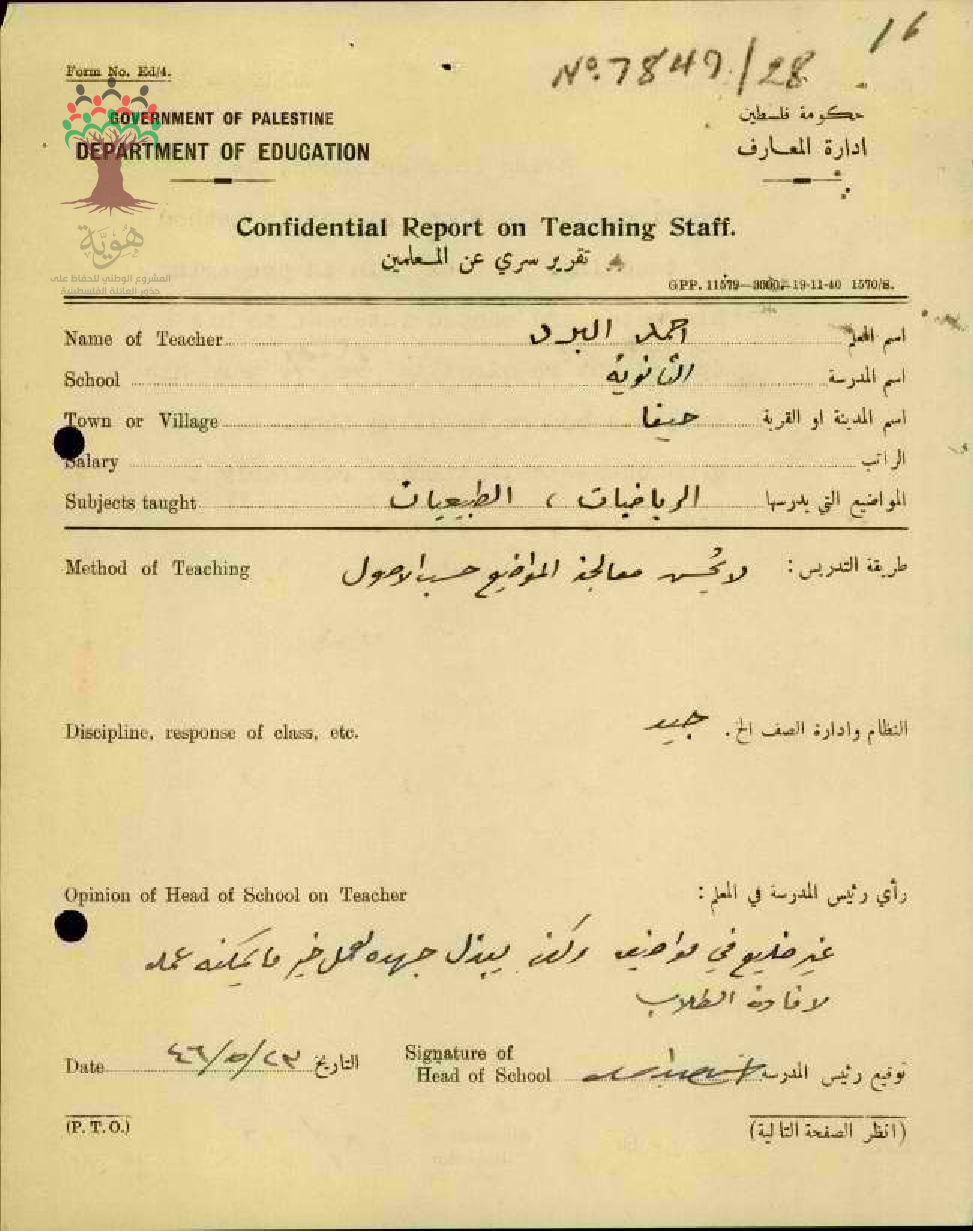 16
Nº 7849/28
Form No. Ed/4.
GOVERNMENT OF PALESTINE
حكومة فلسطين
DEPARTMENT OF EDUCATION
ادارة المعارف
هُوِيَّة
المشروع الوطني للحفاظ على
جذور العائلة الفلسطينية
Confidential Report on Teaching Staff.
تقرير سري عن المعلمين
GPP. 11579—3000—19-11-40 1570/S.
Name of Teacher احمد البرد اسم المعلم
School الثانوية اسم المدرسة
Town or Village حيفا اسم المدينة او القرية
Salary الراتب
Subjects taught الرياضيات ، الطبيعيات المواضيع التي يدرسها
Method of Teaching طريقة التدريس : لا يُحسن معالجة المواضيع حسب الاصول
Discipline, response of class, etc. النظام وادارة الصف الخ. جيد
Opinion of Head of School on Teacher رأي رئيس المدرسة في المعلم :
غير ضليع في مواضيعه ولكنه يبذل جهده لعمل خير ما يمكنه عمله
لافادة الطلاب
Date ٢٣/٥/٤٦ التاريخ
Signature of
Head of School توقيع رئيس المدرسة
(P. T. O.) (انظر الصفحة التالية)